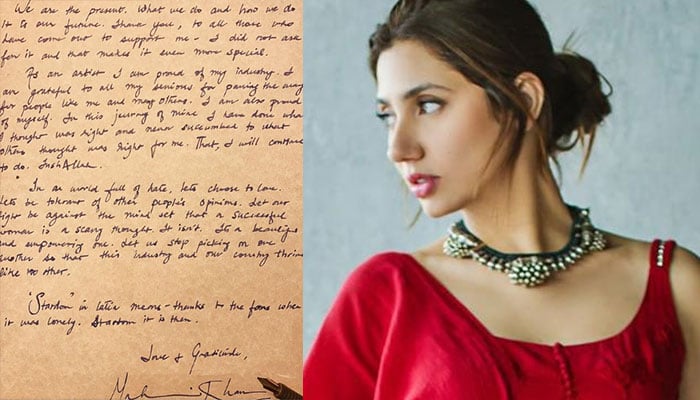 We are the present. What we do and how we do
it is our future. Thank you, to all those who
have come out to support me - I did not ask
for it and that makes it even more special.
As an artist I am proud of my industry. I
am grateful to all my seniors for paving the way
for people like me and many others. I am also proud
of myself. In this journey of mine I have done what
I thought was right and never succumbed to what
others thought was right for me. That, I will continue
to do. InshAllah.
In a world full of hate, lets choose to love.
Lets be tolerant of other people's opinions. Let our
fight be against the mind set that a successful
woman is a scary thought. It isn't. Its a beautiful
and empowering one. Let us stop picking on one
another so that this industry and our country thrive
like no other.
"Stardom" in latin means - thanks to the fans when
it was lonely. Stardom it is then.
Love & Gratitude,
Mahira Khan